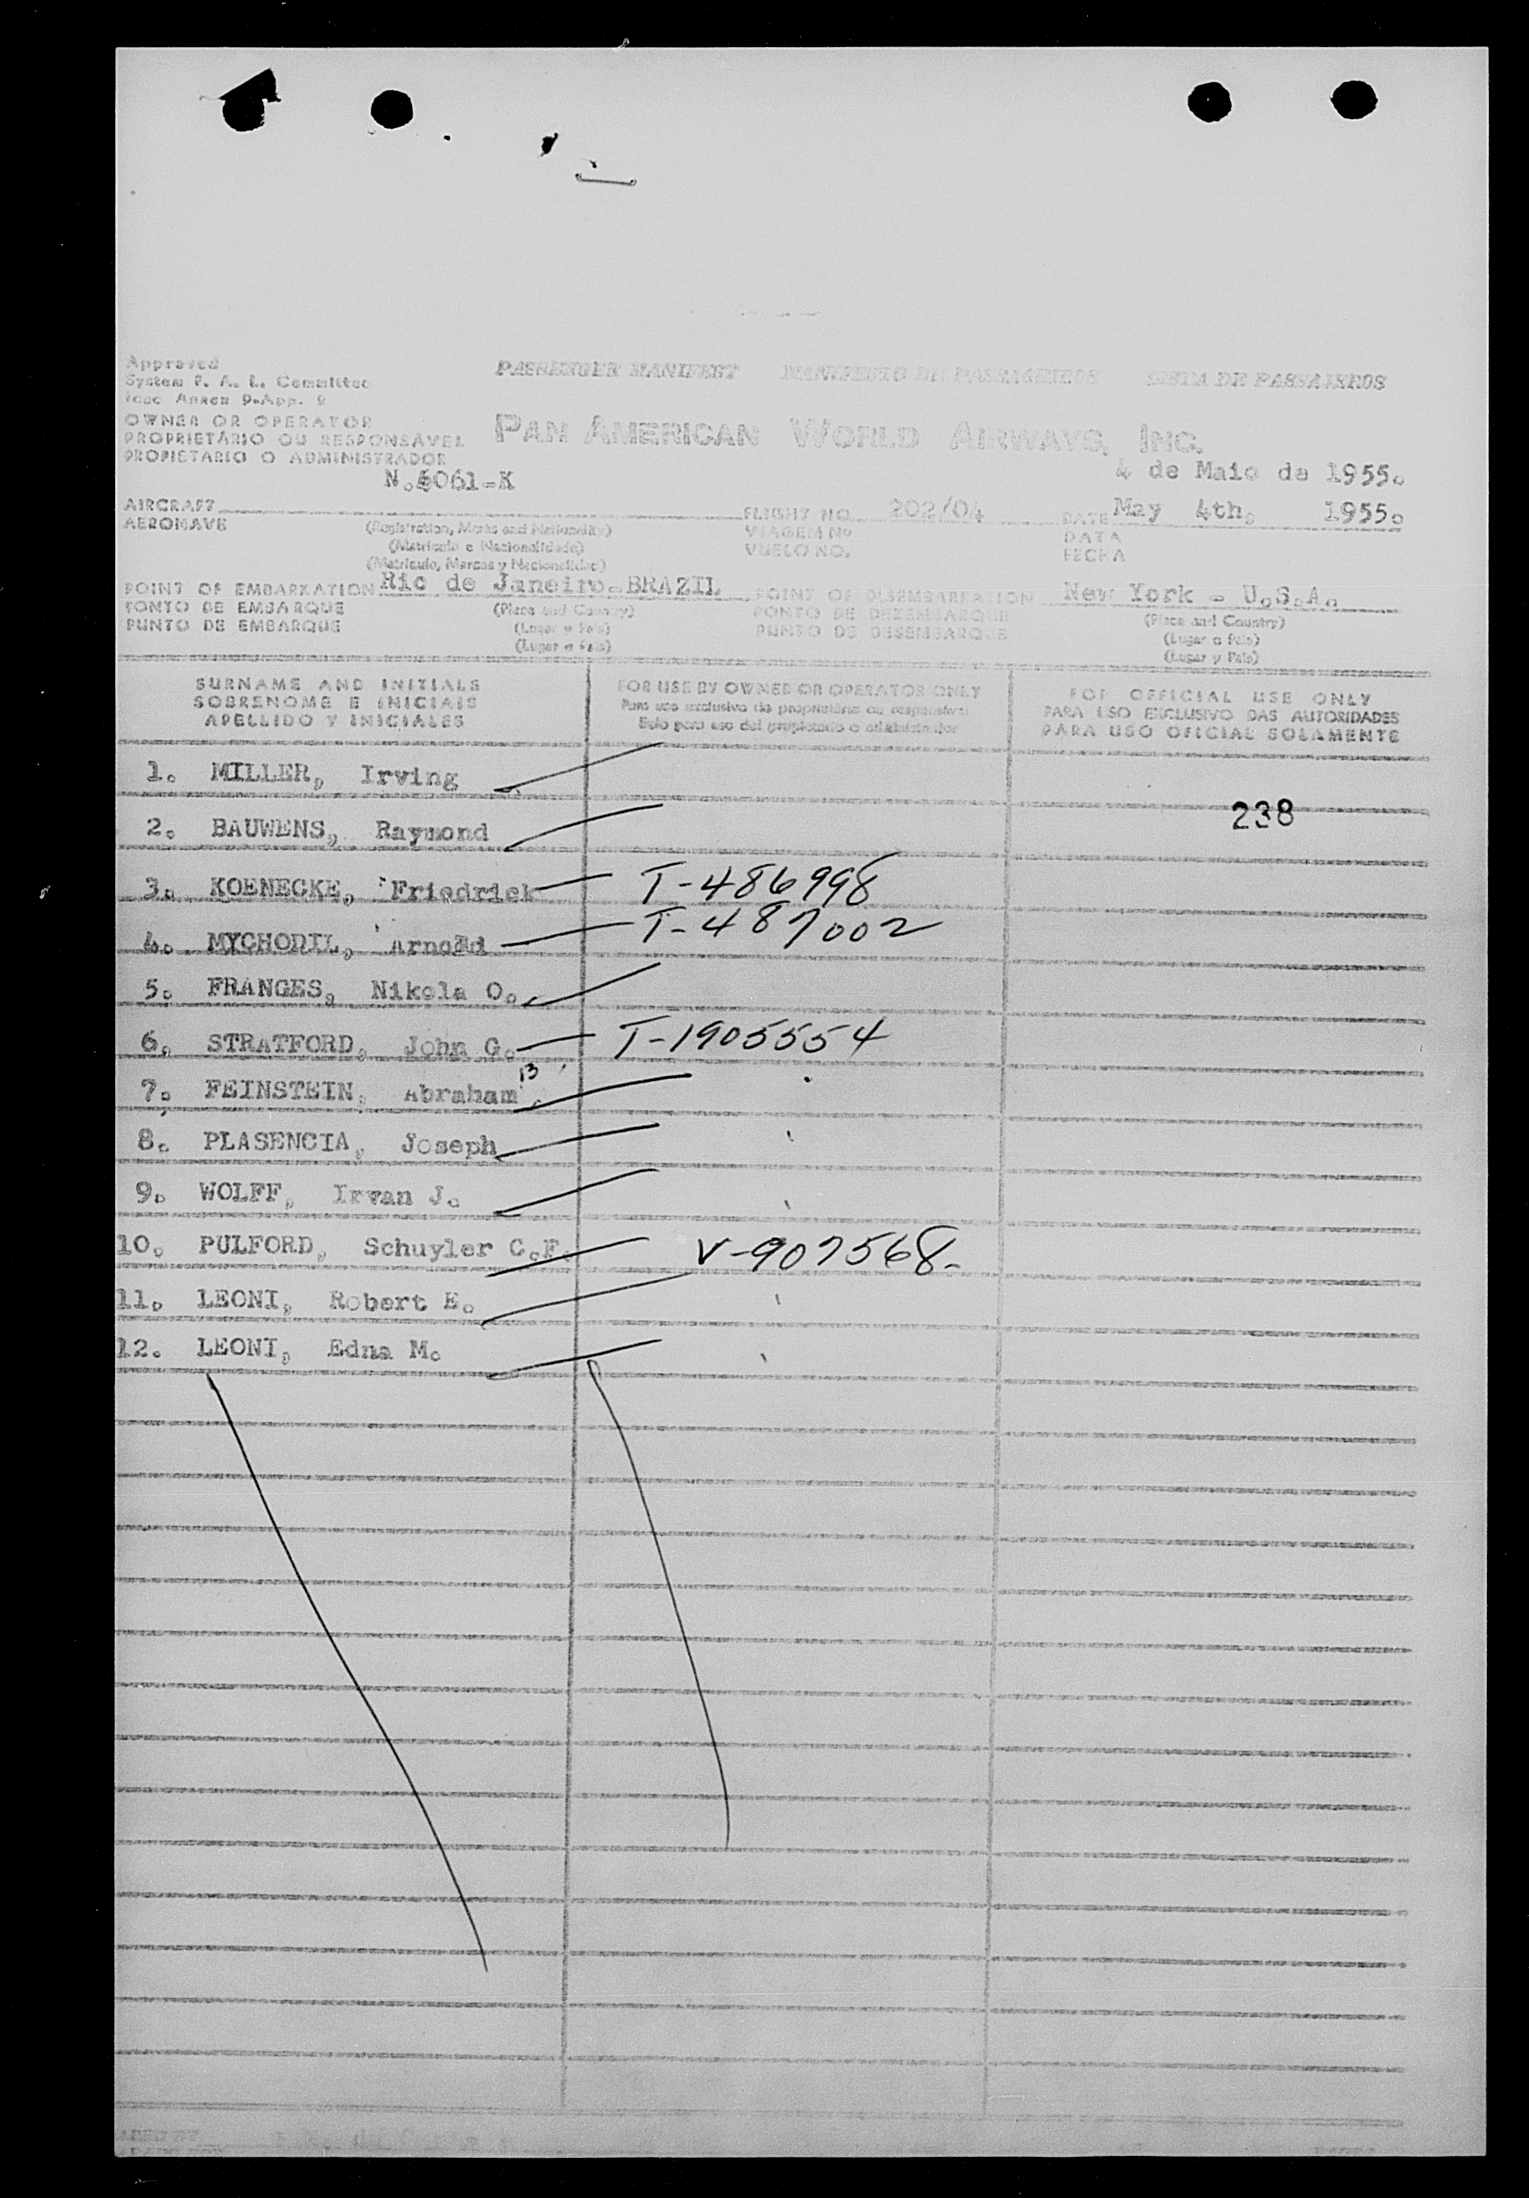 Approved
System P. A. L. Committee
Icac Annex 9-App. 2
PASSENGER MANIFEST MANIFESTO DE PASSAGEIROS LISTA DE PASSAJEROS
OWNER OR OPERATOR
PROPRIETÁRIO OU RESPONSAVEL
PROPIETARIO O ADMINISTRADOR
PAN AMERICAN WORLD AIRWAYS, INC.
4 de Maio de 1955.
N.5061-K
AIRCRAFT
AERONAVE
(Registration, Marks and Nationality)
(Matricula e Nacionalidade)
(Matricula, Marcas y Nacionalidad)
FLIGHT NO. 202/04
VIAGEM Nº
VUELO NO.
DATE May 4th, 1955.
DATA
FECHA
POINT OF EMBARKATION Rio de Janeiro-BRAZIL
PONTO DE EMBARQUE (Place and Country)
PUNTO DE EMBARQUE (Lugar e Pais)
(Lugar e Pais)
POINT OF DISEMBARKATION New York - U.S.A.
PONTO DE DESEMBARQUE (Place and Country)
PUNTO DE DESEMBARQUE (Lugar o Pais)
(Lugar y Pais)
SURNAME AND INITIALS
SOBRENOME E INICIAIS
APELLIDO Y INICIALES
FOR USE BY OWNER OR OPERATOR ONLY
Para uso exclusivo do proprietário ou responsável
Solo para uso del propietario o administrador
FOR OFFICIAL USE ONLY
PARA USO EXCLUSIVO DAS AUTORIDADES
PARA USO OFICIAL SOLAMENTE
1. MILLER, Irving
238
2. BAUWENS, Raymond
3. KOENECKE, Friedrick T-486998
4. MYCHODIL, Arnold T-487002
5. FRANGES, Nikola O.
6. STRATFORD, John G. T-1905554
7. FEINSTEIN, Abraham 13
8. PLASENCIA, Joseph
9. WOLFF, Irvan J.
10. PULFORD, Schuyler C.F. V-907568-
11. LEONI, Robert E.
12. LEONI, Edna M.